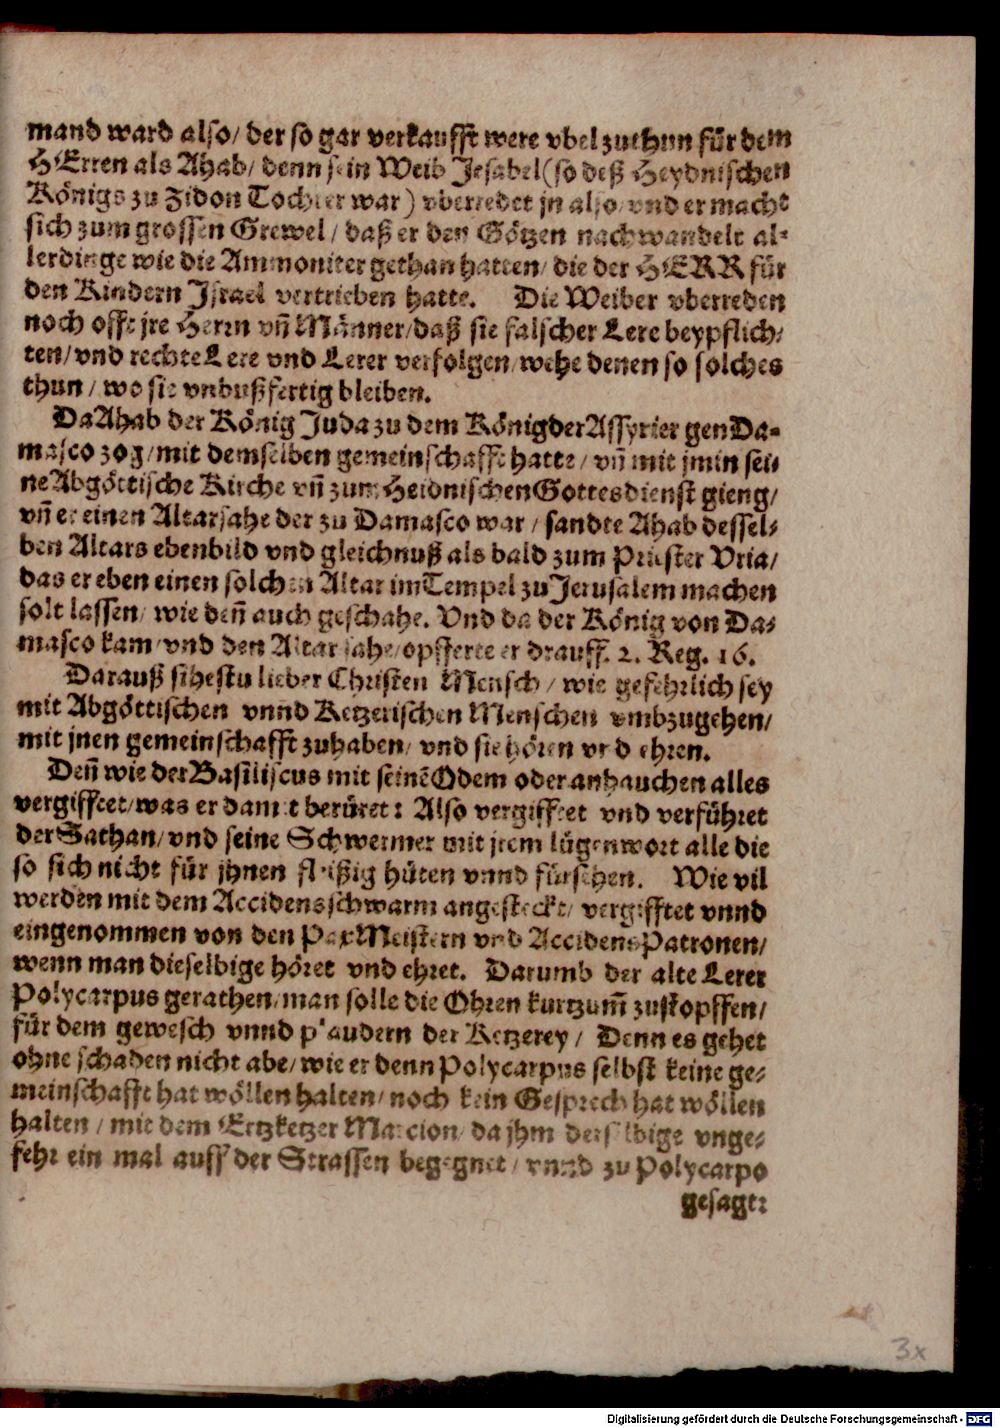 mand ward also/ der so gar verkaufft were vbel zuthun für dem
HErren als Ahab/ denn sein Weib Jesabel (so deß Heydnischen
Königs zu Zidon Tochter war) vberredet jn also/ vnd er macht
sich zum grossen Grewel / daß er den Götzen nachwandelt al-
lerdinge wie die Ammoniter gethan hatten/ die der HERR für
den Kindern Israel vertrieben hatte. Die Weiber vberreden
noch offt jre Herrn vñ Männer/ daß sie falscher Lere beypflich-
ten/ vnd rechte Lere vnd Lerer verfolgen/ wehe denen so solches
thun / wo sie vnbußfertig bleiben.
Da Ahab der König Juda zu dem König der Assyrier gen Da-
masco zog/ mit demselben gemeinschafft hatte / vñ mit jmin sei-
ne Abgöttische Kirche vñ zum Heidnischen Gottesdienst gieng/
vñ er einen Altar sahe der zu Damasco war / sandte Ahab dessel-
ben Altars ebenbild vnd gleichnuß als bald zum Priester Vria/
das er eben einen solchen Altar im Tempel zu Jerusalem machen
solt lassen/ wie deñ auch geschahe. Vnd da der König von Da-
masco kam/ vnd den Altar sahe/ opfferte er drauff. 2. Reg. 16.
Darauß sihestu lieber Christen Mensch / wie gefehrlich sey
mit Abgöttischen vnnd Ketzerischen Menschen vmbzugehen/
mit jnen gemeinschafft zuhaben/ vnd sie hören vnd ehren.
Deñ wie der Basiliscus mit seinẽ Odem oder anhauchen alles
vergifftet/ was er damit berüret: Also vergifftet vnd verführet
der Sathan/ vnd seine Schwermer mit jrem lügenwort alle die
so sich nicht für jhnen fleißig hüten vnnd fürsehen. Wie vil
werden mit dem Accidensschwarm angesteckt/ vergifftet vnnd
eingenommen von den PaxMeistern vnd AccidensPatronen/
wenn man dieselbige höret vnd ehret. Darumb der alte Lerer
Polycarpus gerathen/ man solle die Ohren kurtzum̃ zustopffen/
für dem gewesch vnnd plaudern der Ketzerey / Denn es gehet
ohne schaden nicht abe/ wie er denn Polycarpus selbst keine ge-
meinschafft hat wöllen halten/ noch kein Gesprech hat wöllen
halten / mit dem Ertzketzer Marcion/ da jhm derselbige vnge-
fehr ein mal auff der Strassen begegnet / vnnd zu Polycarpo
gesagt:
3x
Digitalisierung gefördert durch die Deutsche Forschungsgemeinschaft - DFG